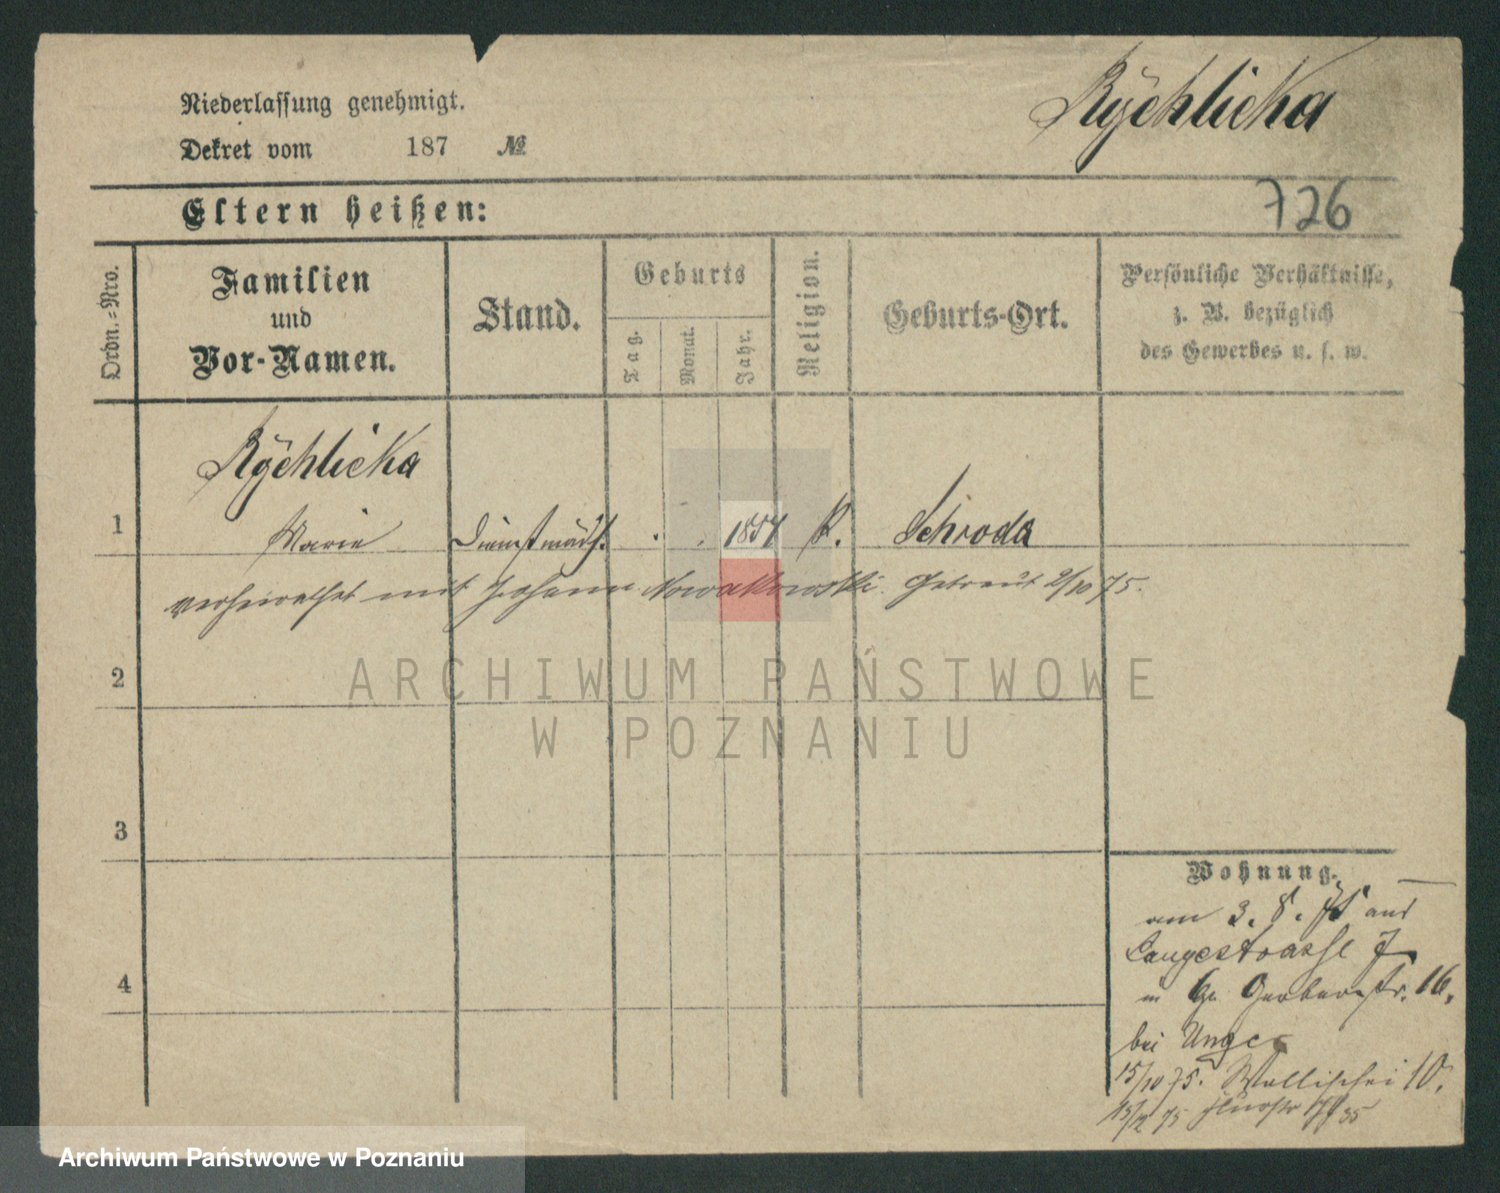 Rÿchlicka
Niederlassung genehmigt.
Dekret vom 187 №
Eltern heißen:
726
Ordn.-Nro.
Familien
und
Vor-Namen.
Stand.
Geburts
Tag.
Monat.
Jahr.
Religion.
Geburts-Ort.
Persönliche Verhältnisse,
z. B. bezüglich
des Gewerbes u. s. w.
Rÿchlicka
1 Marie Dienstmädch. 1857 K. Schroda
verheirathet mit Johann Nowakowski. Getraut 2/10 75.
2
3
4
Wohnung.
am 3. 8. 75 aus
Langestrasse 7
in Gr Gerberstr. 16.
bei Unger
15/10 75. Wallischei 10.
13/12 75
ARCHIWUM PAŃSTWOWE
W POZNANIU
Archiwum Państwowe w Poznaniu